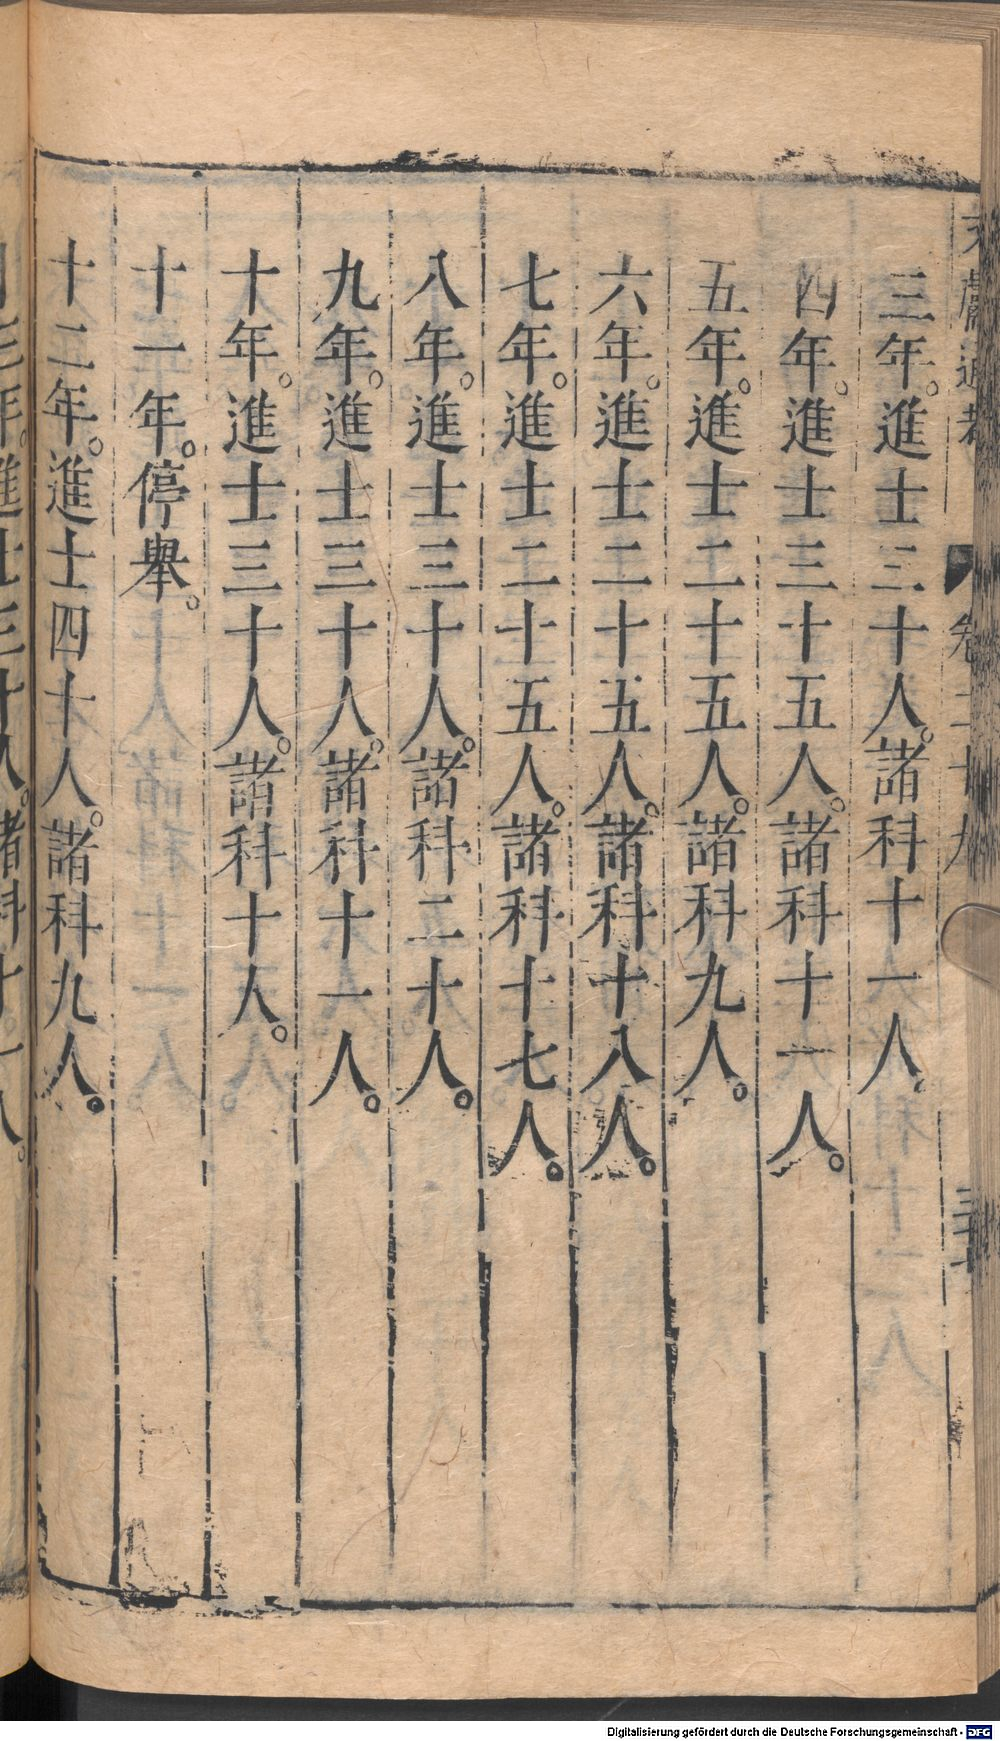 文獻通考 卷二十九
三年。進士三十人。諸科十一人。
四年。進士三十五人。諸科十一人。
五年。進士二十五人。諸科九人。
六年。進士二十五人。諸科十八人。
七年。進士二十五人。諸科十七人。
八年。進士三十人。諸科二十人。
九年。進士三十人。諸科十一人。
十年。進士三十人。諸科十人。
十一年。停舉。
十二年。進士四十人。諸科九人。
Digitalisierung gefördert durch die Deutsche Forschungsgemeinschaft - DFG